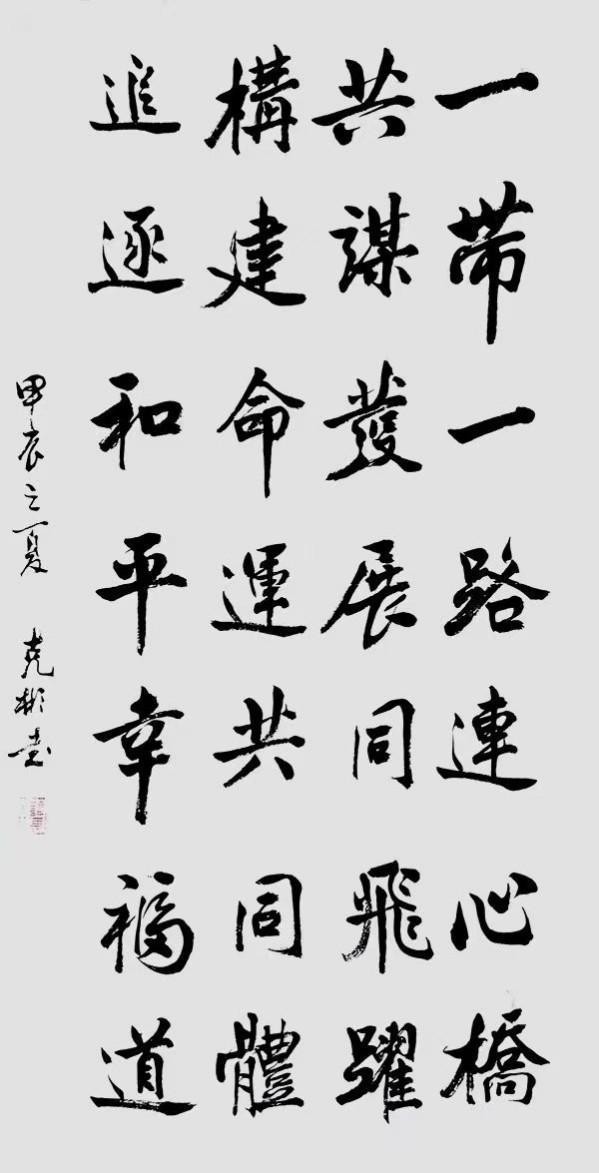 一帶一路連心橋
共謀發展同飛躍
構建命運共同體
追逐和平幸福道
甲辰之夏 克彬書